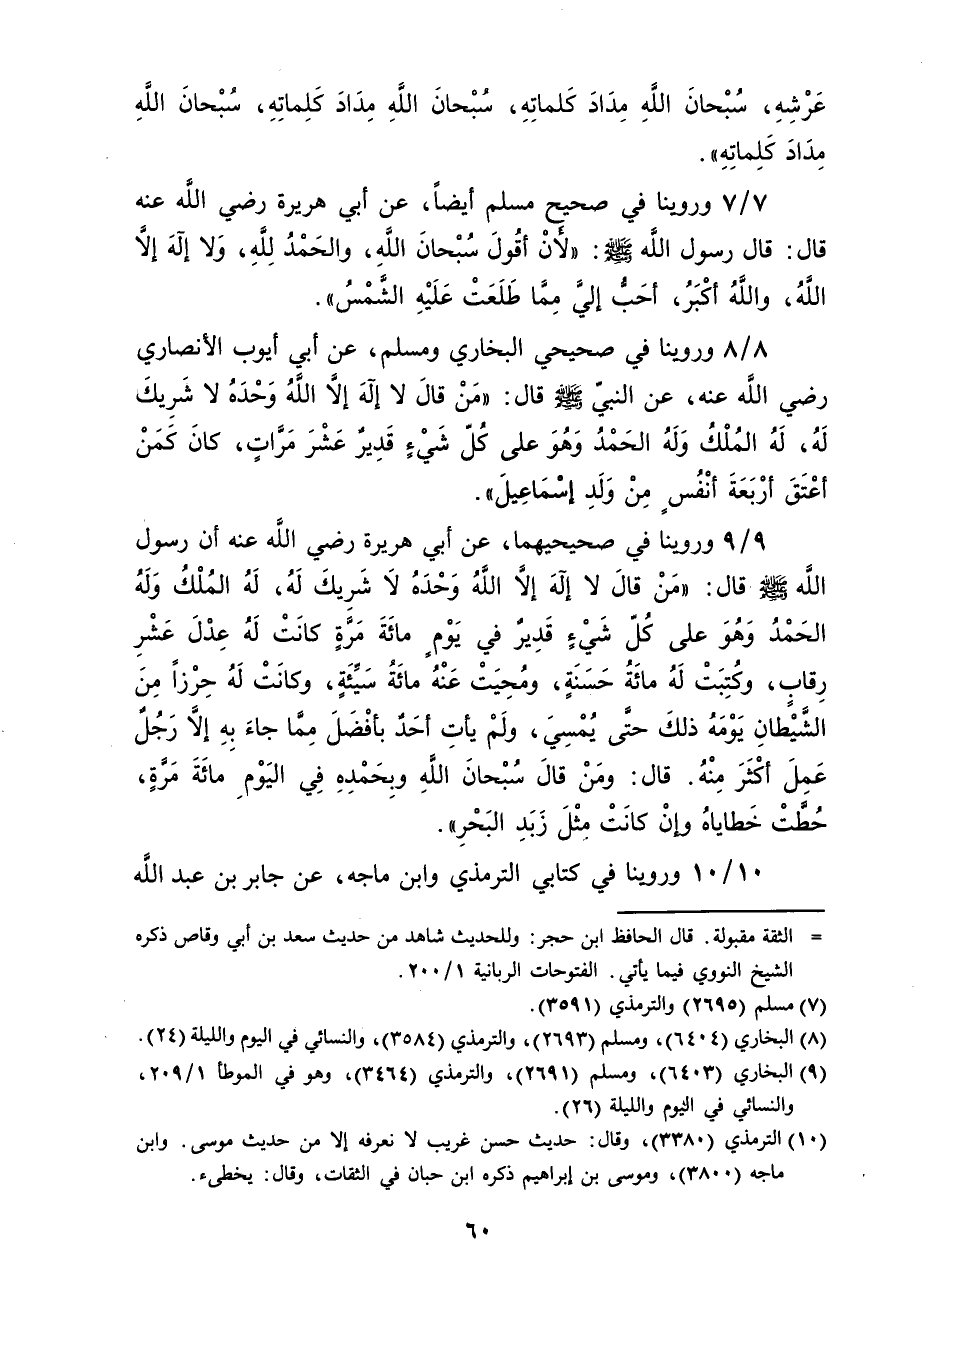 عَرْشِهِ، سُبْحانَ اللَّهِ مِدَادَ كَلماتِهِ، سُبْحانَ اللَّهِ مِدَادَ كَلِماتِهِ، سُبْحانَ اللَّهِ
مِدَادَ كَلِماتِهِ».
٧/٧ وروينا في صحيح مسلم أيضاً، عن أبي هريرة رضي اللَّه عنه
قال: قال رسول اللَّه ﷺ: «لأَنْ أقُولَ سُبْحانَ اللَّهِ، والحَمْدُ لِلَّهِ، وَلا إلٓهَ إلاَّ
اللَّهُ، واللَّهُ أكْبَرُ، أحَبُّ إليَّ مِمَّا طَلَعَتْ عَلَيْهِ الشَّمْسُ».
٨/٨ وروينا في صحيحي البخاري ومسلم، عن أبي أيوب الأنصاري
رضي اللَّه عنه، عن النبيّ ﷺ قال: «مَنْ قالَ لا إلٓهَ إلاَّ اللَّهُ وَحْدَهُ لا شَرِيكَ
لَهُ، لَهُ المُلْكُ وَلَهُ الحَمْدُ وَهُوَ على كُلّ شَيْءٍ قَدِيرٌ عَشْرَ مَرَّاتٍ، كانَ كَمَنْ
أعْتَقَ أرْبَعَةَ أنْفُسٍ مِنْ وَلَدِ إسْمَاعِيلَ».
٩/٩ وروينا في صحيحيهما، عن أبي هريرة رضي اللَّه عنه أن رسول
اللَّه ﷺ قال: «مَنْ قالَ لا إلٓهَ إلاَّ اللَّهُ وَحْدَهُ لاَ شَرِيكَ لَهُ، لَهُ المُلْكُ وَلَهُ
الحَمْدُ وَهُوَ على كُلّ شَيْءٍ قَدِيرٌ في يَوْمٍ مائَةَ مَرَّةٍ كانَتْ لَهُ عِدْلَ عَشْرِ
رِقابٍ، وكُتِبَتْ لَهُ مائَةُ حَسَنَةٍ، ومُحِيَتْ عَنْهُ مائَةُ سَيِّئَةٍ، وكانَتْ لَهُ حِرْزاً مِنَ
الشَّيْطانِ يَوْمَهُ ذلكَ حتَّى يُمْسِيَ، ولَمْ يأتِ أحَدٌ بأفْضَلَ مِمَّا جاءَ بِهِ إلَّا رَجُلٌ
عَمِلَ أكْثَرَ مِنْهُ. قال: ومَنْ قالَ سُبْحانَ اللَّهِ وبِحَمْدِهِ فِي اليَوْمِ مائَةَ مَرَّةٍ،
حُطَّتْ خَطاياهُ وإنْ كانَتْ مِثْلَ زَبَدِ البَحْرِ».
١٠/١٠ وروينا في كتابي الترمذي وابن ماجه، عن جابر بن عبد اللَّه
= الثقة مقبولة. قال الحافظ ابن حجر: وللحديث شاهد من حديث سعد بن أبي وقاص ذكره
الشيخ النووي فيما يأتي. الفتوحات الربانية ٢٠٠/١.
(٧) مسلم (٢٦٩٥) والترمذي (٣٥٩١).
(٨) البخاري (٦٤٠٤)، ومسلم (٢٦٩٣)، والترمذي (٣٥٨٤)، والنسائي في اليوم والليلة (٢٤).
(٩) البخاري (٦٤٠٣)، ومسلم (٢٦٩١)، والترمذي (٣٤٦٤)، وهو في الموطأ ٢٠٩/١،
والنسائي في اليوم والليلة (٢٦).
(١٠) الترمذي (٣٣٨٠)، وقال: حديث حسن غريب لا نعرفه إلا من حديث موسى. وابن
ماجه (٣٨٠٠)، وموسى بن إبراهيم ذكره ابن حبان في الثقات، وقال: يخطىء.
٦٠